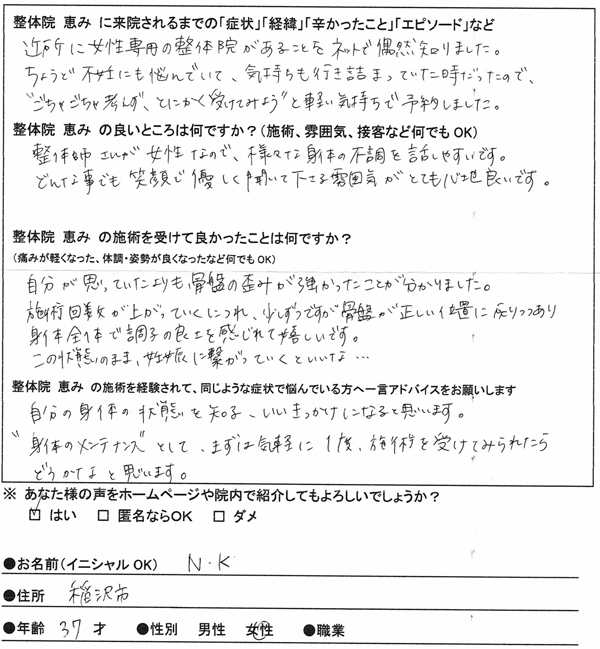 整体院 恵み に来院されるまでの「症状」「経緯」「辛かったこと」「エピソード」など
近所に女性専用の整体院があることをネットで偶然知りました。
ちょうど不妊にも悩んでいて、気持ちも行き詰まっていた時だったので、
"ごちゃごちゃ考えず、とにかく受けてみよう"と軽い気持ちで予約しました。
整体院 恵み の良いところは何ですか？(施術、雰囲気、接客など何でも OK)
整体師さんが女性なので、様々な身体の不調を話しやすいです。
どんな事でも笑顔で優しく聞いて下さる雰囲気がとても心地良いです。
整体院 恵み の施術を受けて良かったことは何ですか？
(痛みが軽くなった、体調・姿勢が良くなったなど何でもOK)
自分が思っていたよりも骨盤の歪みが強かったことが分かりました。
施術回数が上がっていくにつれ、少しずつですが骨盤が正しい位置に戻りつつあり
身体全体で調子の良さを感じれて嬉しいです。
この状態のまま、妊娠に繋がっていくといいな…
整体院 恵み の施術を経験されて、同じような症状で悩んでいる方へ一言アドバイスをお願いします
自分の身体の状態を知る、いいきっかけになると思います。
"身体のメンテナンス"として、まずは気軽に1度、施術を受けてみられたら
どうかなと思います。
※ あなた様の声をホームページや院内で紹介してもよろしいでしょうか？
☑ はい □ 匿名ならOK □ ダメ
●お名前(イニシャル OK) N・K
●住所 稲沢市
●年齢 37 才 ●性別 男性 女性 ●職業